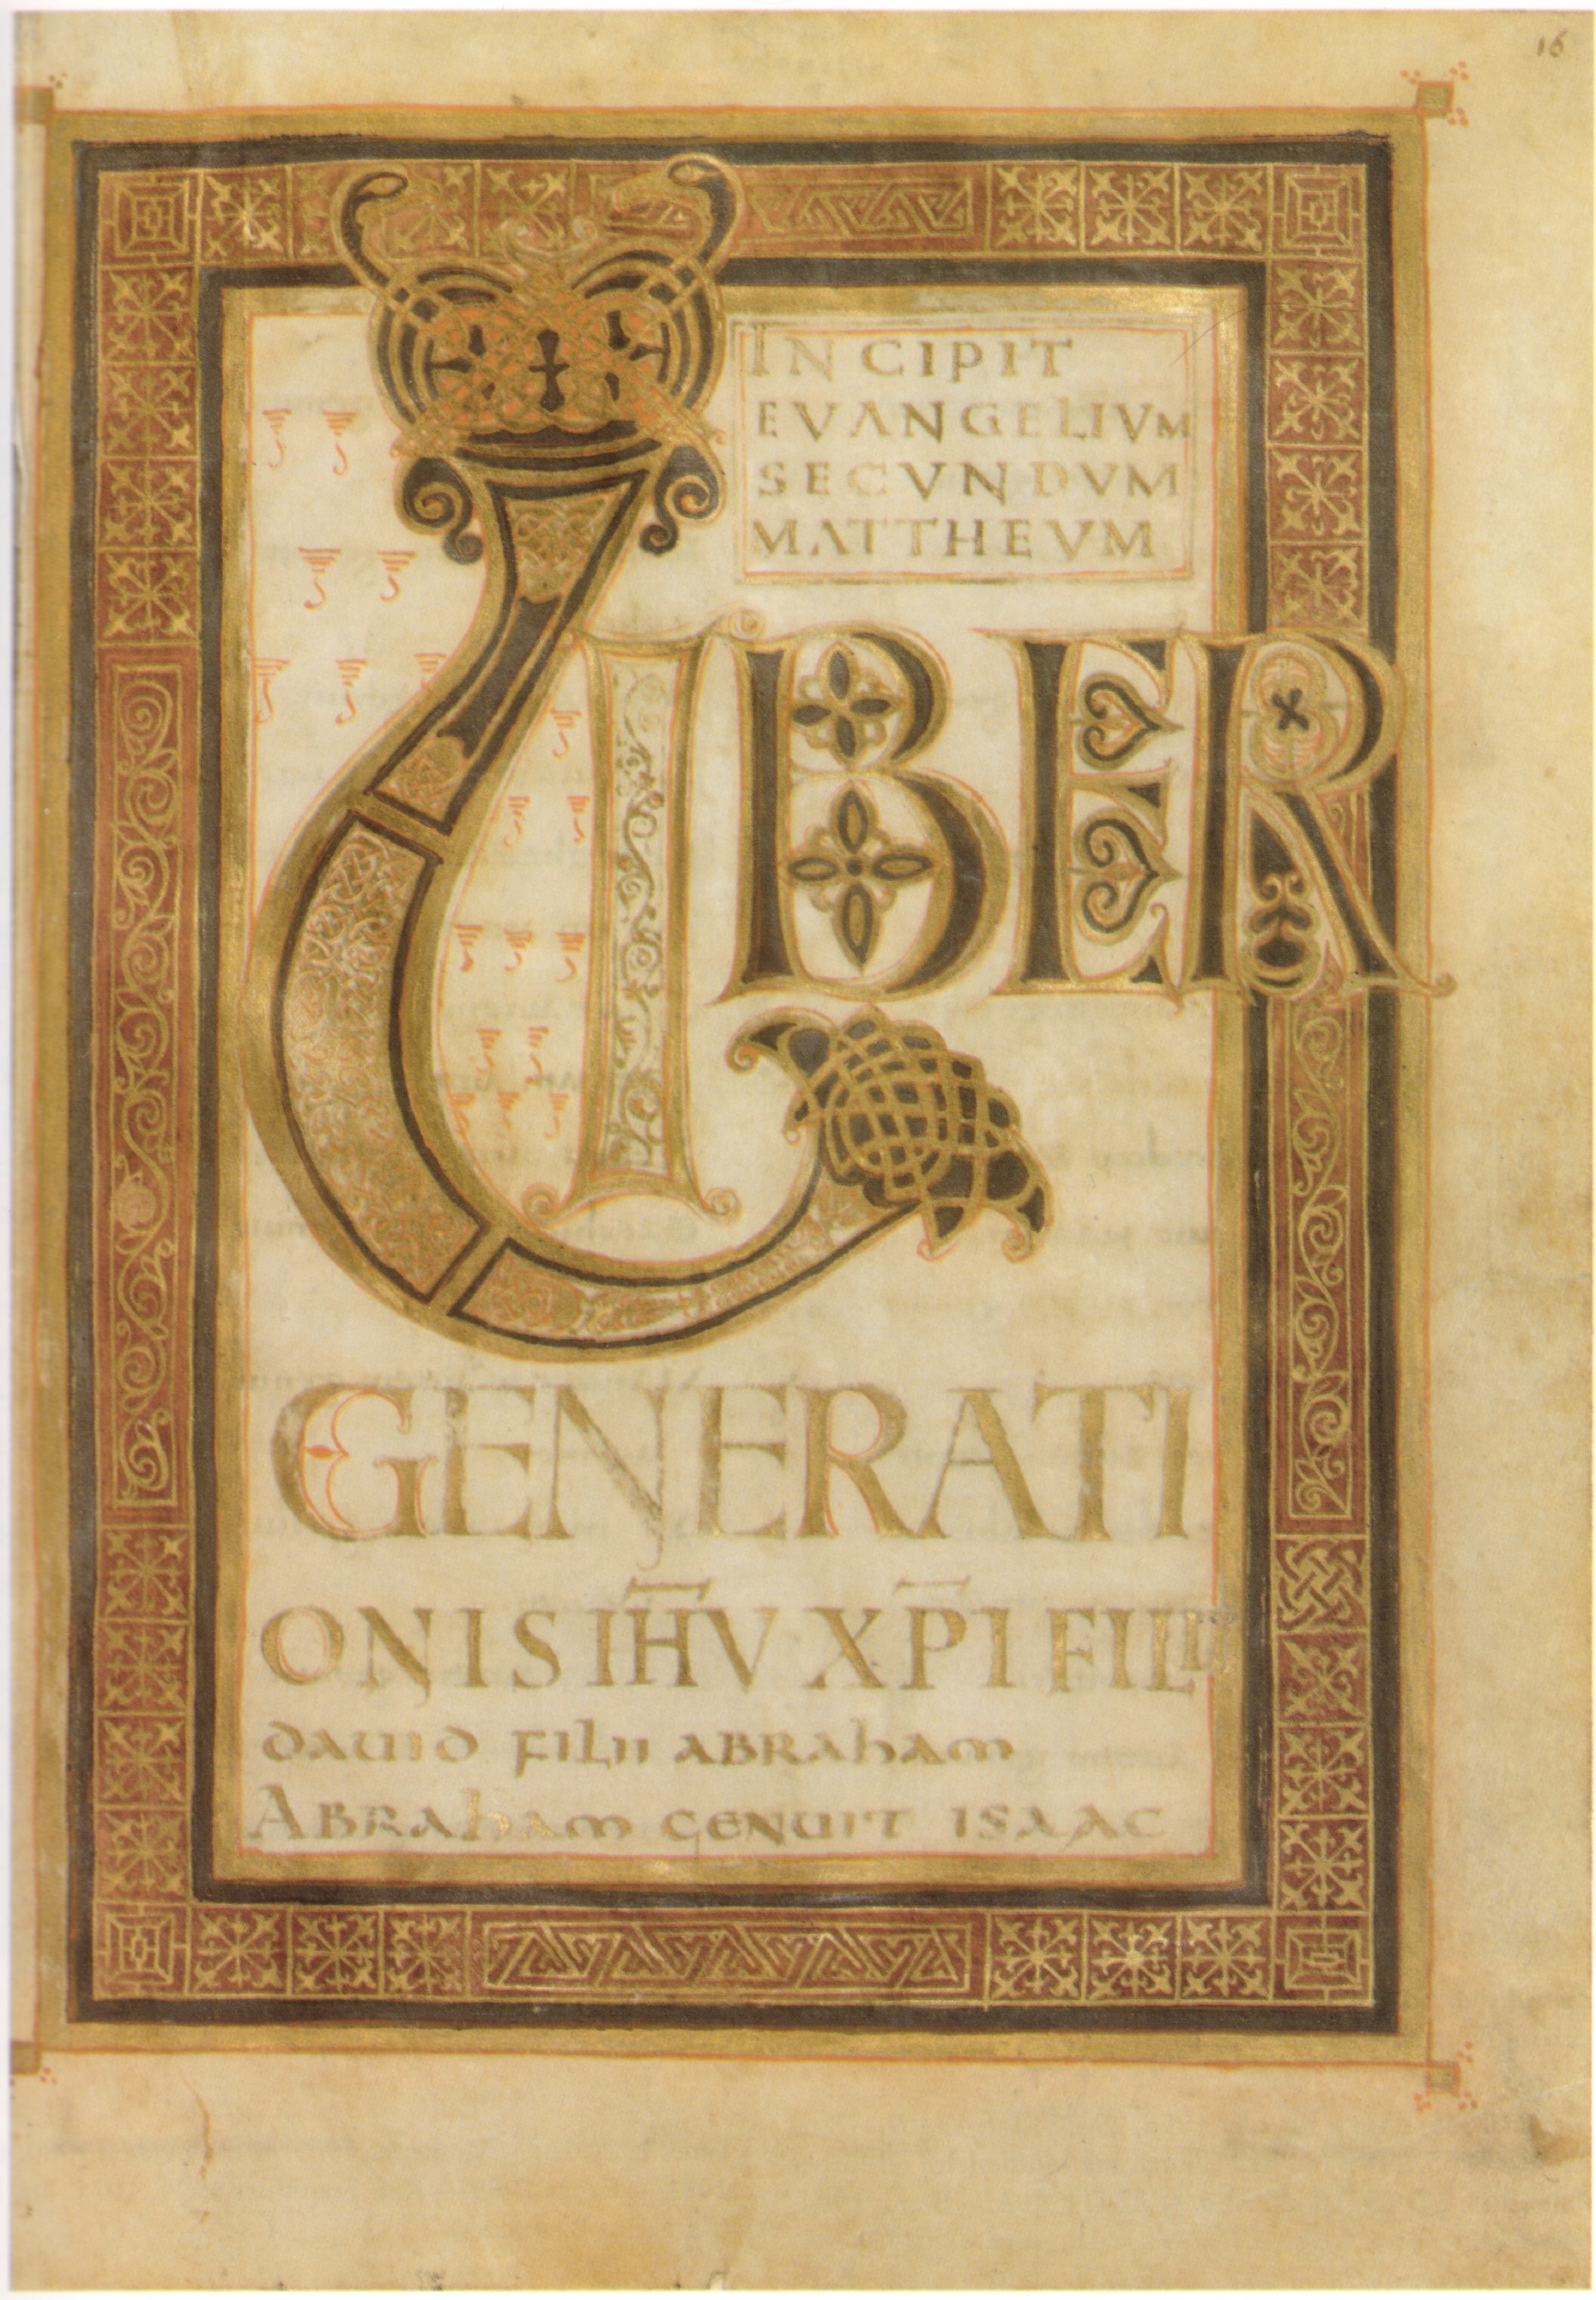 16
INCIPIT
EVANGELIVM
SECVNDVM
MATTHEVM
LIBER
GENERATI
ONIS IH̅V XP̅I FILII
DAUID FILII ABRAHAM
ABRAHAM GENUIT ISAAC